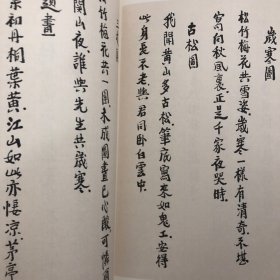 歲寒圖
松竹梅花共雪姿歲寒一樣有清奇不堪
寫向秋風裏正是千家夜哭時
古松圖
我聞黃山多古松筆底寫來如鬼工安得
此身至不老與君同卧白雲中
圖
松竹梅花共一圖未成圖畫已心可憐
關山夜誰與先生共歲寒
題畫
初丹桐葉黃江山如此亦悽涼茅亭